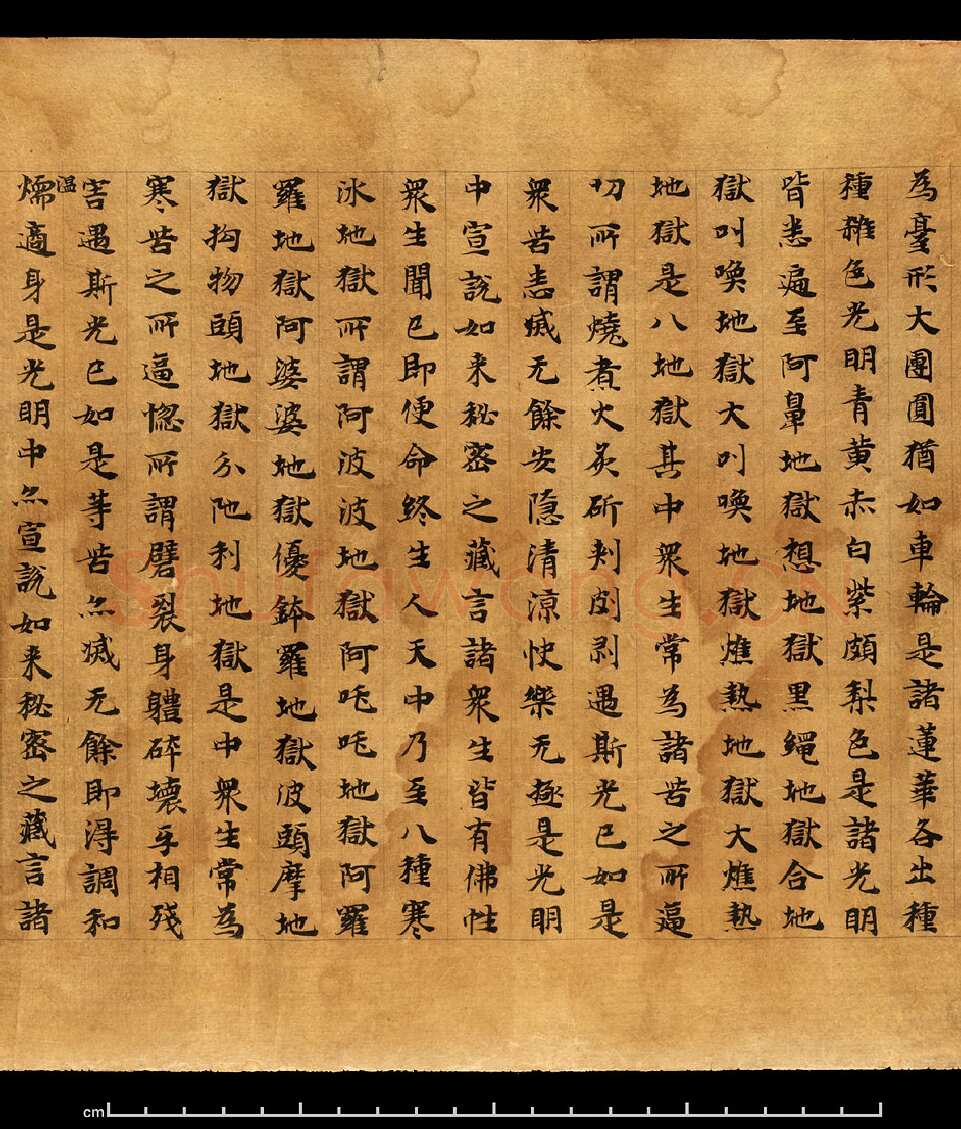 為臺形大團圓猶如車輪是諸蓮華各出種
種雜色光明青黄赤白紫頗梨色是諸光明
皆悉遍至阿鼻地獄想地獄黑繩地獄合地
獄叫喚地獄大叫喚地獄燋熱地獄大燋熱
地獄是八地獄其中衆生常為諸苦之所逼
切所謂燒煮火炙斫刾剅剥遇斯光已如是
衆苦悉滅无餘安隱清涼快樂无極是光明
中宣說如来秘密之藏言諸衆生皆有佛性
衆生聞已即便命終生人天中乃至八種寒
氷地獄所謂阿波波地獄阿吒吒地獄阿羅
羅地獄阿婆婆地獄優鉢羅地獄波頭摩地
獄拘物頭地獄分陁利地獄是中衆生常為
寒苦之所逼惱所謂礔裂身體碎壞㸦相殘
害遇斯光已如是等苦亦滅无餘即得調和
温
煗適身是光明中亦宣說如来秘密之藏言諸
Shufawang.CN
cm